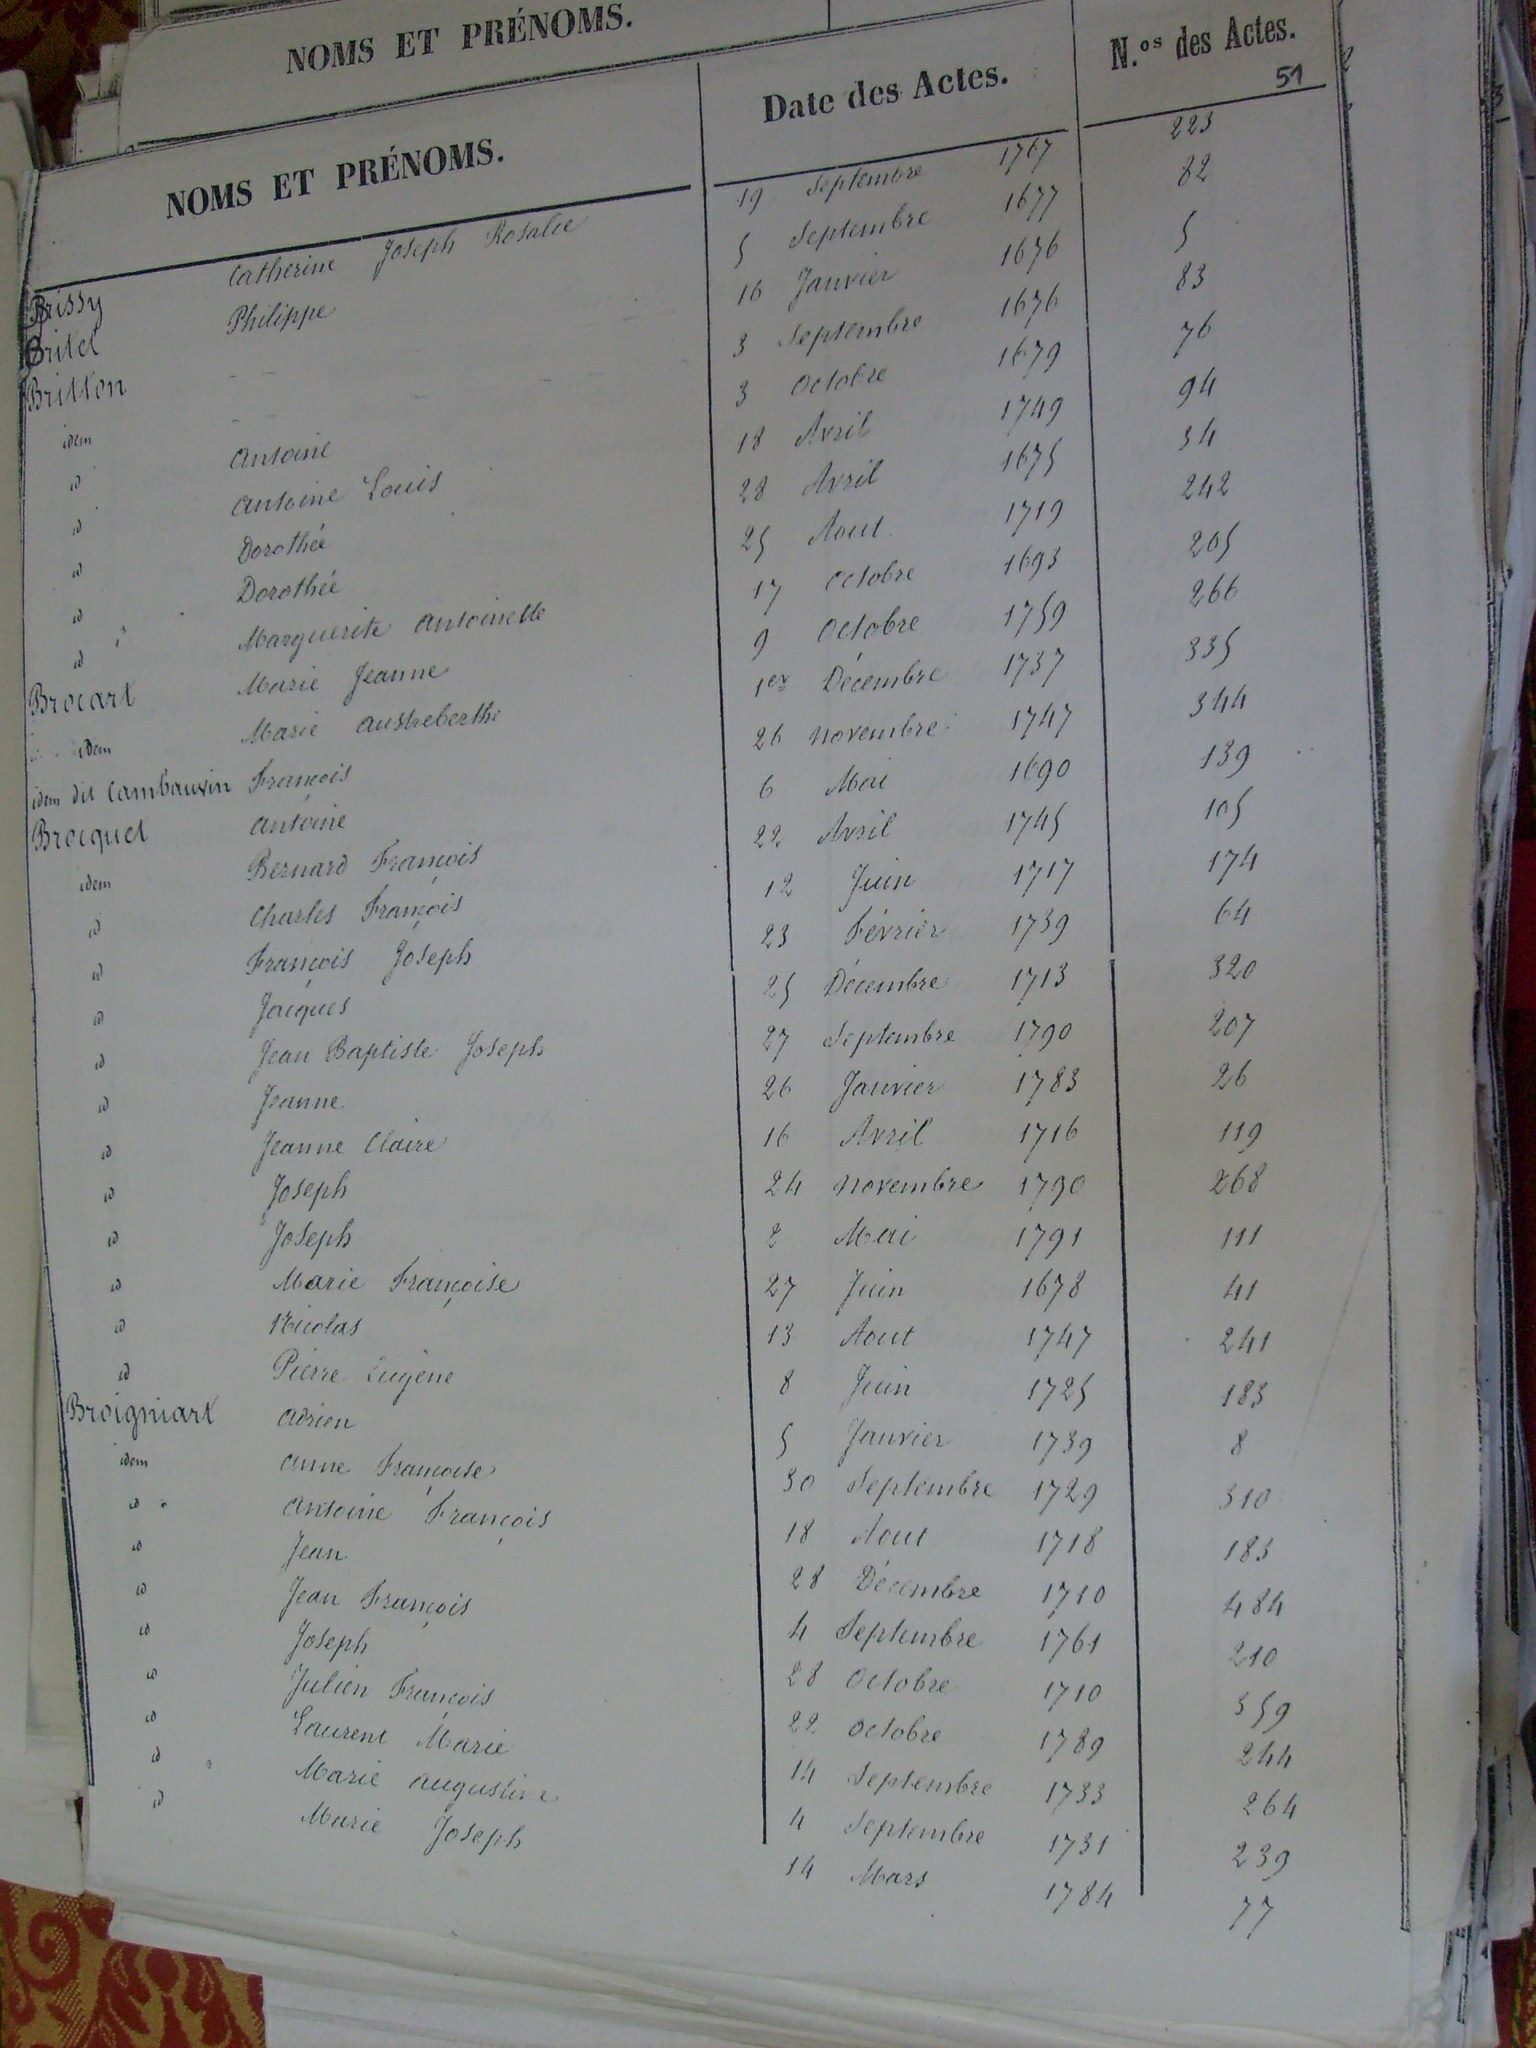 NOMS ET PRÉNOMS.
NOMS ET PRÉNOMS. Date des Actes. N.os des Actes.
51
Brissy Catherine Joseph Rosalie 19 Septembre 1767 223
Britel Philippe 5 Septembre 1677 82
Britton 16 Janvier 1676 5
idem 3 Septembre 1676 83
id Antoine 3 Octobre 1679 76
id Antoine Louis 18 Avril 1749 94
id Dorothée 28 Avril 1675 34
id Dorothée 25 Aout 1719 242
id Marguerite Antoinette 17 Octobre 1693 205
Brocart Marie Jeanne 9 Octobre 1759 266
idem Marie Austreberthe 1er Décembre 1737 335
idem dit Cambauvin François 26 novembre 1747 344
Brocquet Antoine 6 Mai 1690 139
idem Bernard François 22 Avril 1745 105
id Charles François 12 Juin 1717 174
id François Joseph 23 Février 1739 64
id Jacques 25 Décembre 1713 320
id Jean Baptiste Joseph 27 Septembre 1790 207
id Jeanne 26 Janvier 1783 26
id Jeanne Claire 16 Avril 1716 119
id Joseph 24 novembre 1790 268
id Joseph 2 Mai 1791 111
id Marie Françoise 27 Juin 1678 41
id Nicolas 13 Aout 1747 241
id Pierre Eugène 8 Juin 1725 183
Broigniart Adrien 5 Janvier 1739 8
idem Anne Françoise 30 Septembre 1729 310
id Antoine François 18 Aout 1718 183
id Jean 28 Décembre 1710 484
id Jean François 4 Septembre 1761 210
id Joseph 28 Octobre 1710 359
id Julien François 22 octobre 1789 244
id Laurent Marie 14 Septembre 1733 264
id Marie Augustine 4 Septembre 1731 239
id Marie Joseph 14 Mars 1784 77